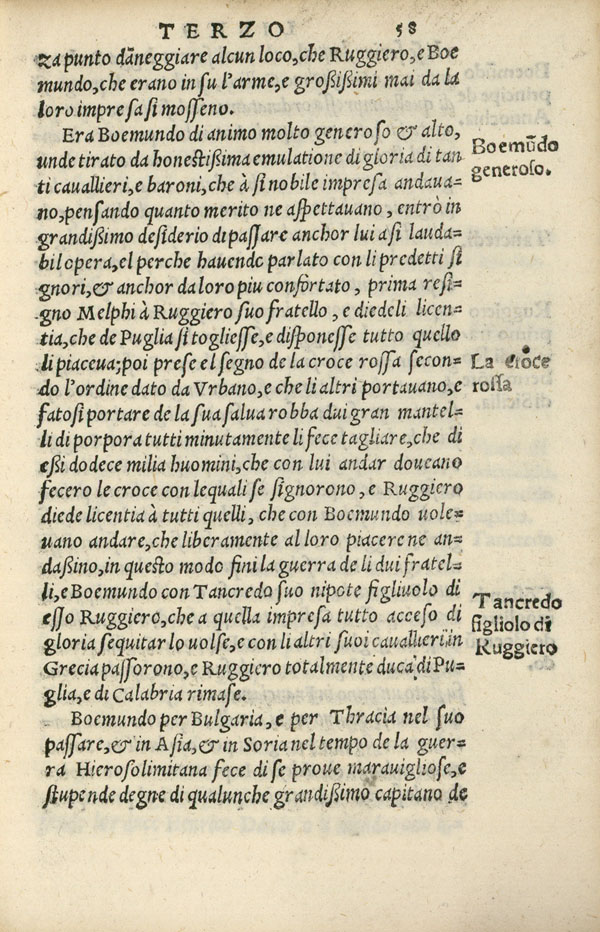 TERZO 58
za punto dãneggiare alcun loco, che Ruggiero, e Boe
mundo, che erano in su l'arme, e großißimi mai da la
loro impresa si mosseno.
Era Boemundo di animo molto generoso & alto,
unde tirato da honestißima emulatione di gloria di tan
ti cauallieri, e baroni, che à si nobile impresa andaua-
no, pensando quanto merito ne aspettauano, entrò in
grandißimo desiderio di passare anchor lui a si lauda-
bil opera, el perche hauendo parlato con li predetti si
gnori, & anchor da loro piu confortato, prima resi-
gno Melphi à Ruggiero suo fratello, e diedeli licen-
tia, che de Puglia si togliesse, e disponesse tutto quello
li piaceua; poi prese el segno de la croce rossa secon-
do l'ordine dato da Vrbano, e che li altri portauano, e
fatosi portare de la sua salua robba dui gran mantel-
li di porpora tutti minutamente li fece tagliare, che di
eßi dodece milia huomini, che con lui andar doueano
fecero le croce con lequali se signorono, e Ruggiero
diede licentia à tutti quelli, che con Boemundo uole-
uano andare, che liberamente al loro piacere ne an-
daßino, in questo modo fini la guerra de li dui fratel-
li, e Boemundo con Tancredo suo nipote figliuolo di
esso Ruggiero, che a quella impresa tutto acceso di
gloria sequitar lo uolse, e con li altri suoi cauallieri in
Grecia passorono, e Ruggiero totalmente duca di Pu-
glia, e di Calabria rimase.
Boemundo per Bulgaria, e per Thracia nel suo
passare, & in Asia, & in Soria nel tempo de la guer-
ra Hierosolimitana fece di se proue marauigliose, e
stupende degne di qualunche grandißimo capitano de
Boemũdo
generoso.
La croce
rossa
Tancredo
figliolo di
Ruggiero